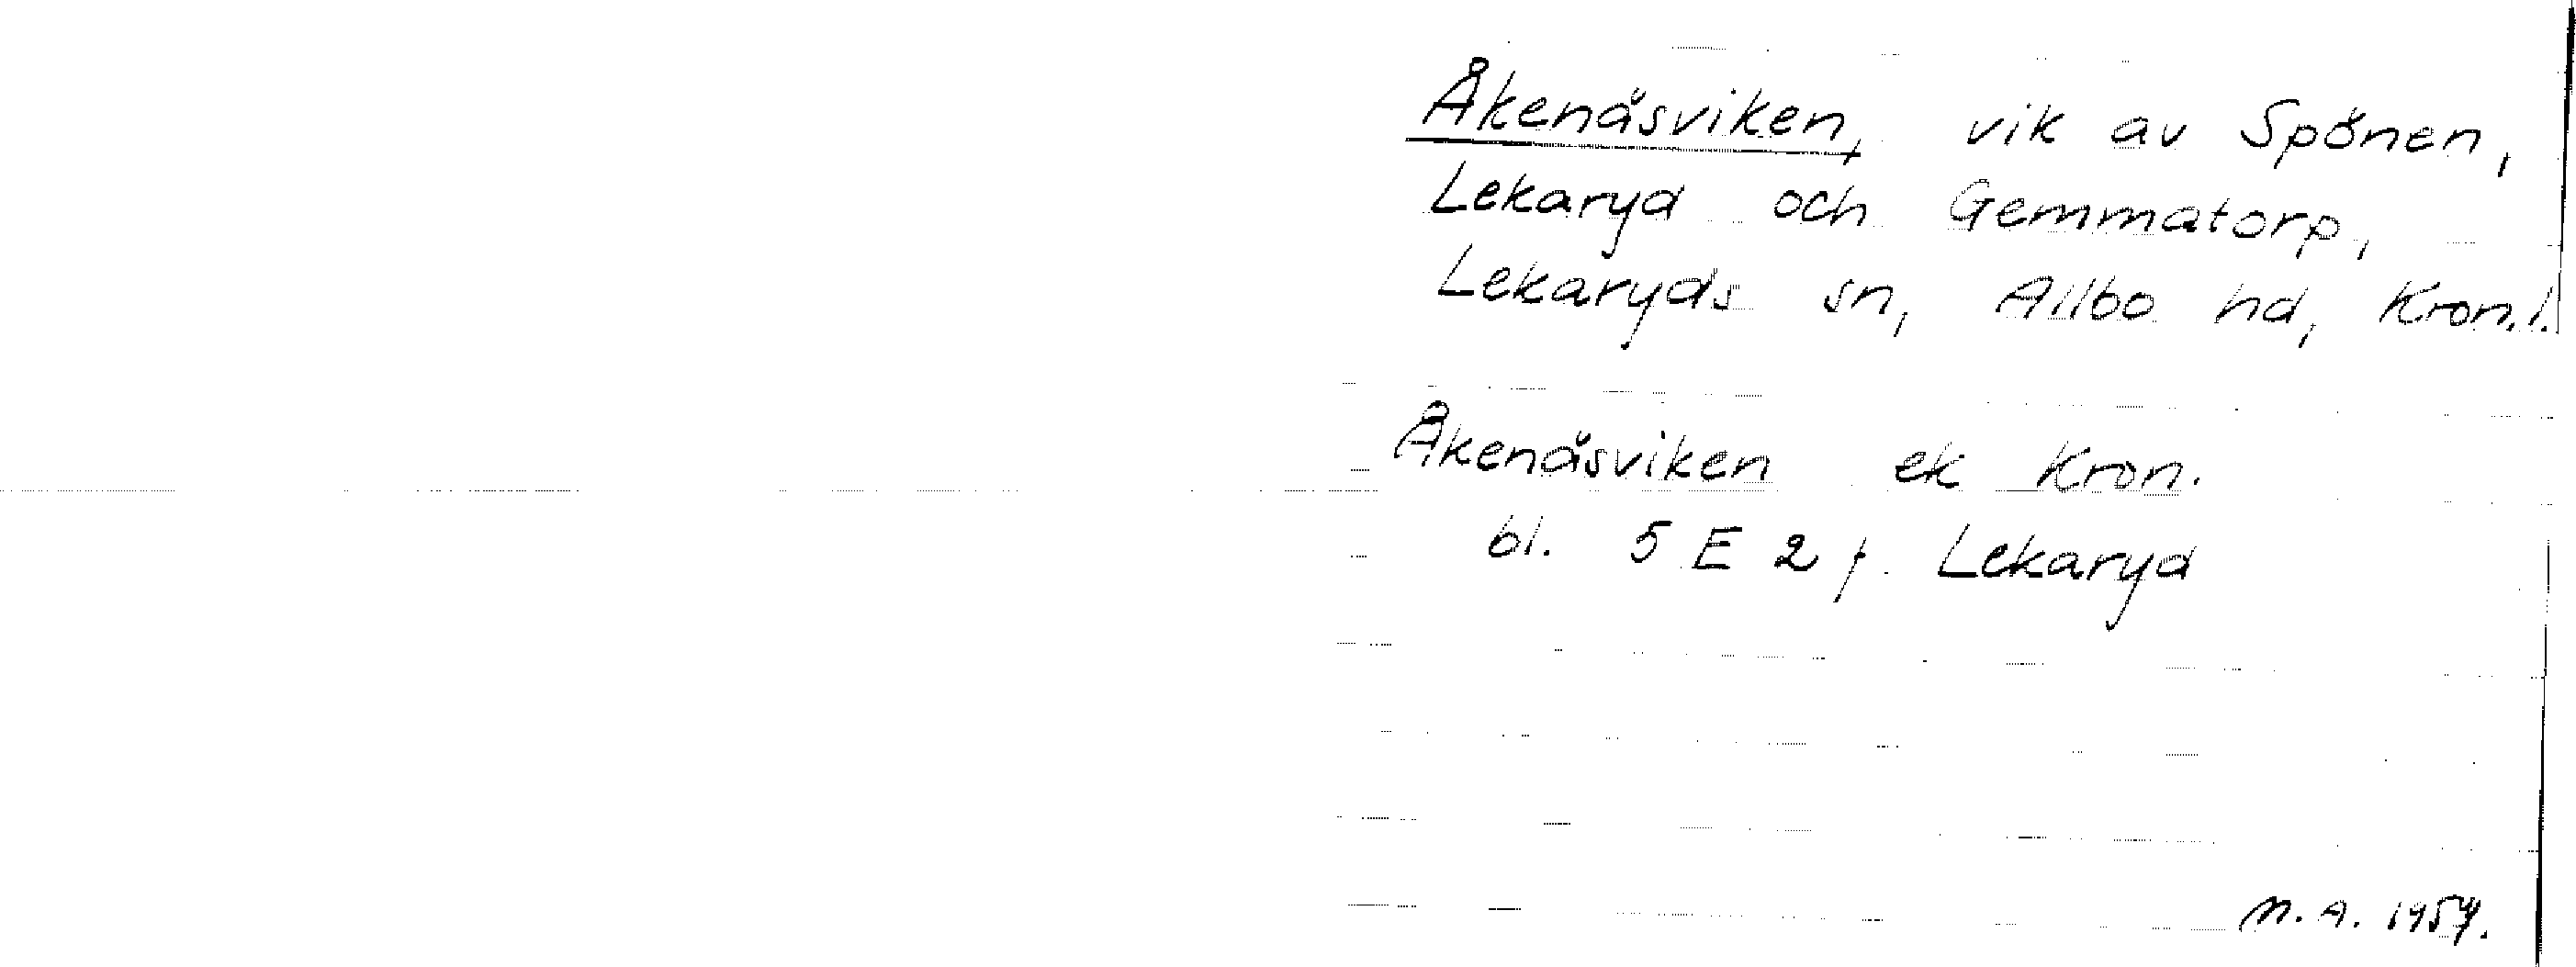 Åkenäsviken, vik av Spånen,
Lekaryd och Gemmatorp,
Lekaryds sn, Allbo hd, Kron.l.
Åkenäsviken ek Kron.
bl. 5 E 2 f Lekaryd
M.A. 1957.